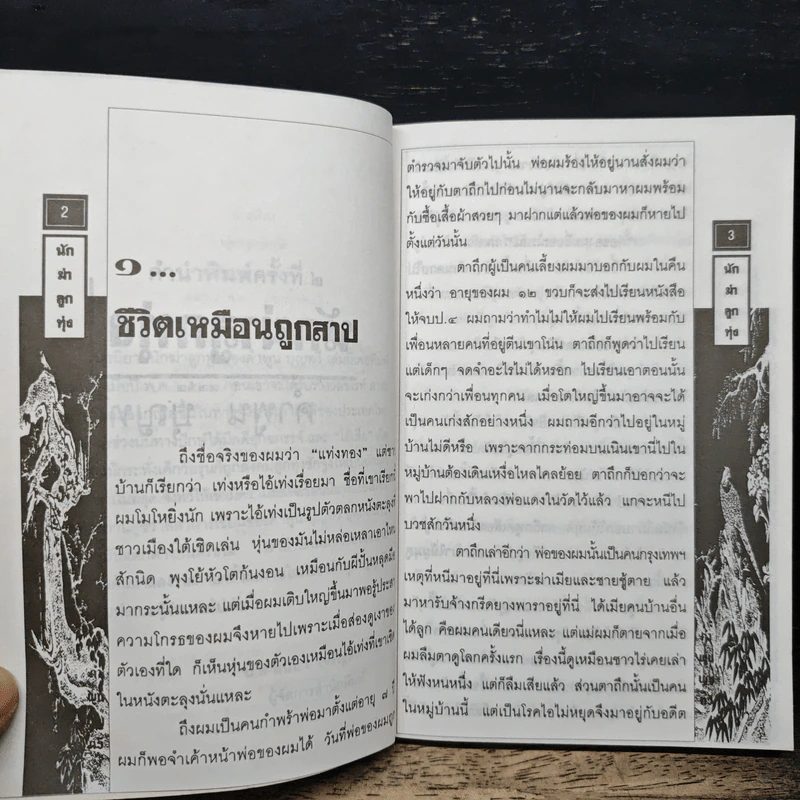 2
นัก
ฆ่า
ลูก
ทุ่ง
๑...
ชีวิตเหมือนถูกสาป
ถึงชื่อจริงของผมว่า "แท่งทอง" แต่ชาว
บ้านก็เรียกว่า เท่งหรือไอ้เท่งเรื่อยมา ชื่อที่เขาเรียก
ผมโมโหยิ่งนัก เพราะไอ้เท่งเป็นรูปตัวตลกหนังตะลุงที่
ชาวเมืองใต้เชิดเล่น หุ่นของมันไม่หล่อเหลาเอาไหน
สักนิด พุงโย้หัวโตก้นงอน เหมือนกับผีปั้นหลุดมือ
มากระนั้นแหละ แต่เมื่อผมเติบใหญ่ขึ้นมาพอรู้ประสา
ความโกรธของผมจึงหายไปเพราะเมื่อส่องดูเงาของ
ตัวเองที่ใด ก็เห็นหุ่นของตัวเองเหมือนไอ้เท่งที่เขาเชิด
ในหนังตะลุงนั่นแหละ
ถึงผมเป็นคนกำพร้าพ่อมาตั้งแต่อายุ ๗
ผมก็พอจำเค้าหน้าพ่อของผมได้ วันที่พ่อของผมถูก
ตำรวจมาจับตัวไปนั้น พ่อผมร้องไห้อยู่นานสั่งผมว่า
ให้อยู่กับตาถึกไปก่อนไม่นานจะกลับมาหาผมพร้อม
กับซื้อเสื้อผ้าสวยๆ มาฝากแต่แล้วพ่อของผมก็หายไป
ตั้งแต่วันนั้น
ตาถึกผู้เป็นคนเลี้ยงผมมาบอกกับผมในคืน
หนึ่งว่า อายุของผม ๑๒ ขวบก็จะส่งไปเรียนหนังสือ
ให้จบป.๔ ผมถามว่าทำไมไม่ให้ผมไปเรียนพร้อมกับ
เพื่อนหลายคนที่อยู่ตีนเขาโน่น ตาถึกก็พูดว่าไปเรียน
แต่เด็กๆ จดจำอะไรไม่ได้หรอก ไปเรียนเอาตอนนั้น
จะเก่งกว่าเพื่อนทุกคน เมื่อโตใหญ่ขึ้นมาอาจจะได้
เป็นคนเก่งสักอย่างหนึ่ง ผมถามอีกว่าไปอยู่ในหมู่
บ้านไม่ดีหรือ เพราะจากกระท่อมบนเนินเขานี้ไปใน
หมู่บ้านต้องเดินเหงื่อไหลไคลย้อย ตาถึกก็บอกว่าจะ
พาไปฝากกับหลวงพ่อแดงในวัดไว้แล้ว แกจะหนีไป
บวชสักวันหนึ่ง
ตาถึกเล่าอีกว่า พ่อของผมนั้นเป็นคนกรุงเทพฯ
เหตุที่หนีมาอยู่ที่นี่เพราะฆ่าเมียและชายชู้ตาย แล้ว
มาหารับจ้างกรีดยางพาราอยู่ที่นี่ ได้เมียคนบ้านอื่น
ได้ลูก คือผมคนเดียวนี่แหละ แต่แม่ผมก็ตายจากเมื่อ
ผมลืมตาดูโลกครั้งแรก เรื่องนี้ดูเหมือนชาวไร่เคยเล่า
ให้ฟังหนหนึ่ง แต่ก็ลืมเสียแล้ว ส่วนตาถึกนั้นเป็นคน
ในหมู่บ้านนี้ แต่เป็นโรคไอไม่หยุดจึงมาอยู่กับอดีต
3
นัก
ฆ่า
ลูก
ทุ่ง